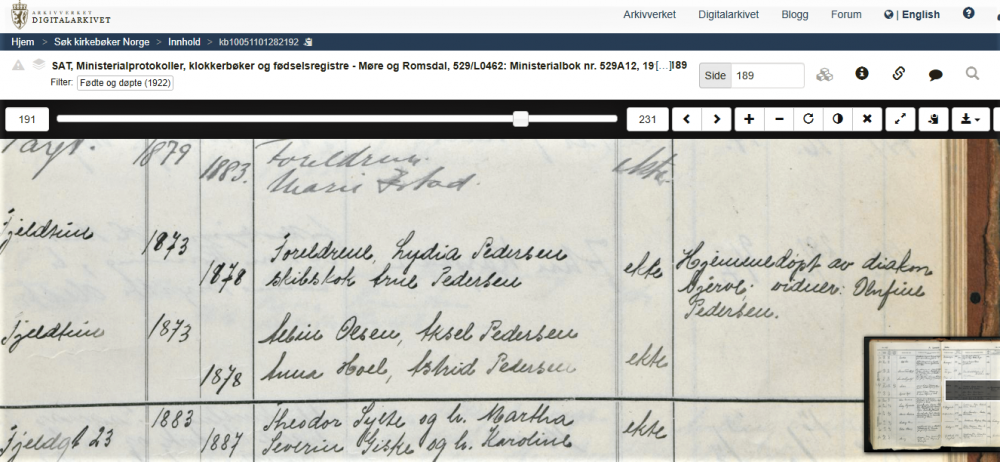 ARKIVVERKET
DIGITALARKIVET
Arkivverket Digitalarkivet Blogg Forum | English
Hjem > Søk kirkebøker Norge > Innhold > kb10051101282192
SAT, Ministerialprotokoller, klokkerbøker og fødselsregistre - Møre og Romsdal, 529/L0462: Ministerialbok nr. 529A12, 19[...]189
Filter: Fødte og døpte (1922)
Side 189
191 231
1879
1883. Foreldrene. ekte
Marie
1873
Foreldrene, Lydia Pedersen
1878 skibskok Arne Pedersen ekte
Hjemmedøpt av diakon
vidner:
Pedersen.
1873
Olsen, Aksel Pedersen
1878 Anna Hoel, Astrid Pedersen ekte
1883 Theodor Sylte og h. Martha ekte
Fjeldgt 23 1887 Severin Giske og h. Karoline